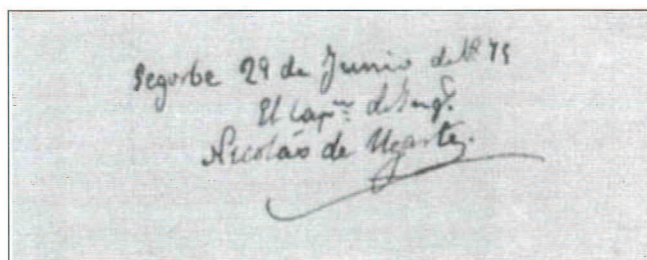 Segorbe 29 de Junio de 1875
El Capn. de Ings.
Nicolás de Ugarte.